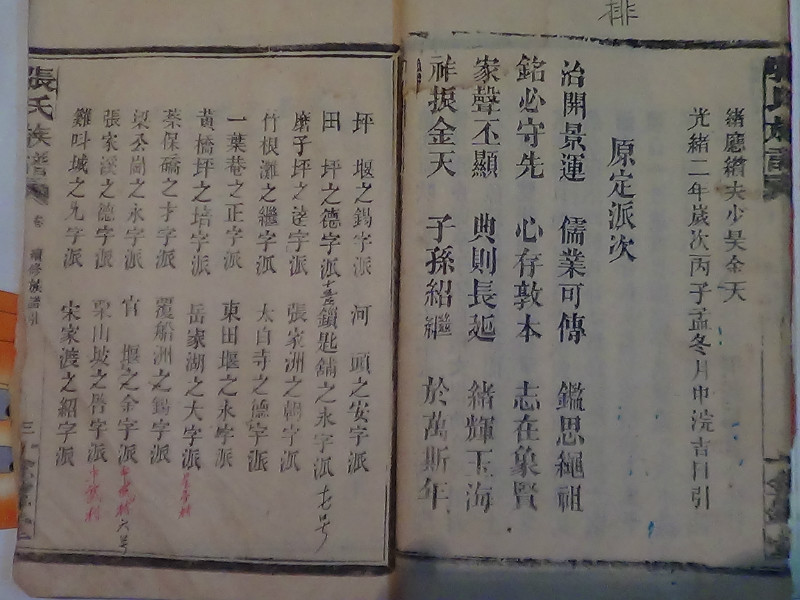 排
緒應續夫少昊金天
光緒二年歲次丙子孟冬月中浣吉日引
原定派次
治開景運 儒業可傳 鑑思繩祖
銘必守先 心存敦本 志在象賢
家聲丕顯 典則長延 緒輝玉海
祥振金天 子孫紹繼 於萬斯年
張氏族譜 卷 續修族譜引 三
坪堰之錫字派 河頭之安字派
田坪之德字派 鎖匙鋪之永字派 七号
磨子坪之達字派 張家洲之朝字派
竹根灘之繼字派 太白寺之德字派
一葉巷之正字派 東田堰之永字派
黃橋坪之培字派 岳家湖之大字派
蔡保礄之才字派 覆船洲之錫字派
梁公崗之永字派 官堰之金字派 六号
張家溪之德字派 栗山坡之唇字派
雞叫城之元字派 宋家渡之紹字派